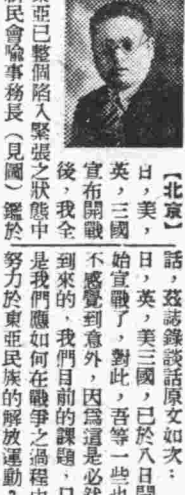 【北京】
日，美，
英，三國
宣布開戰
後，我全
東亞已整個陷入緊張之狀態中
新民會喩事務長（見圖）鑑於
話，茲誌錄談話原文如次：
日，英，美三國，已於八日開
始宣戰了，對此，吾等一些也
不感覺到意外，因爲這是必然
到來的，我們目前的課題，只
是我們應如何在戰爭之過程中
努力於東亞民族的解放運動？